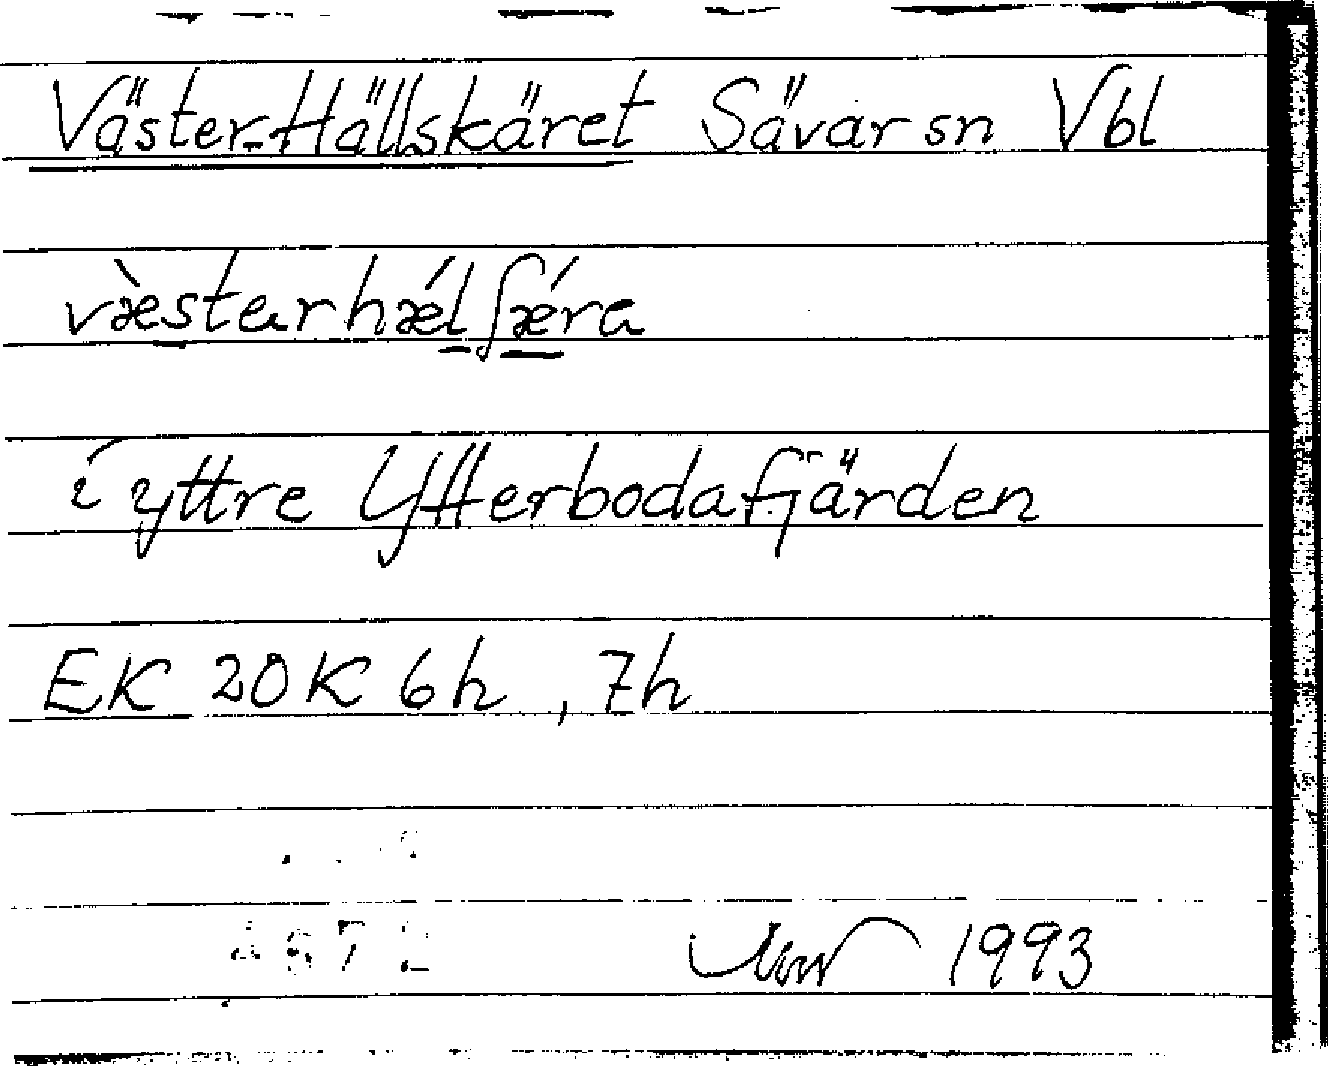 Väster-Hällskäret Sävar sn Vbl
væ̀starhǽlʃǽra
i yttre Ytterbodafjärden
EK 20K 6h , 7h
1993